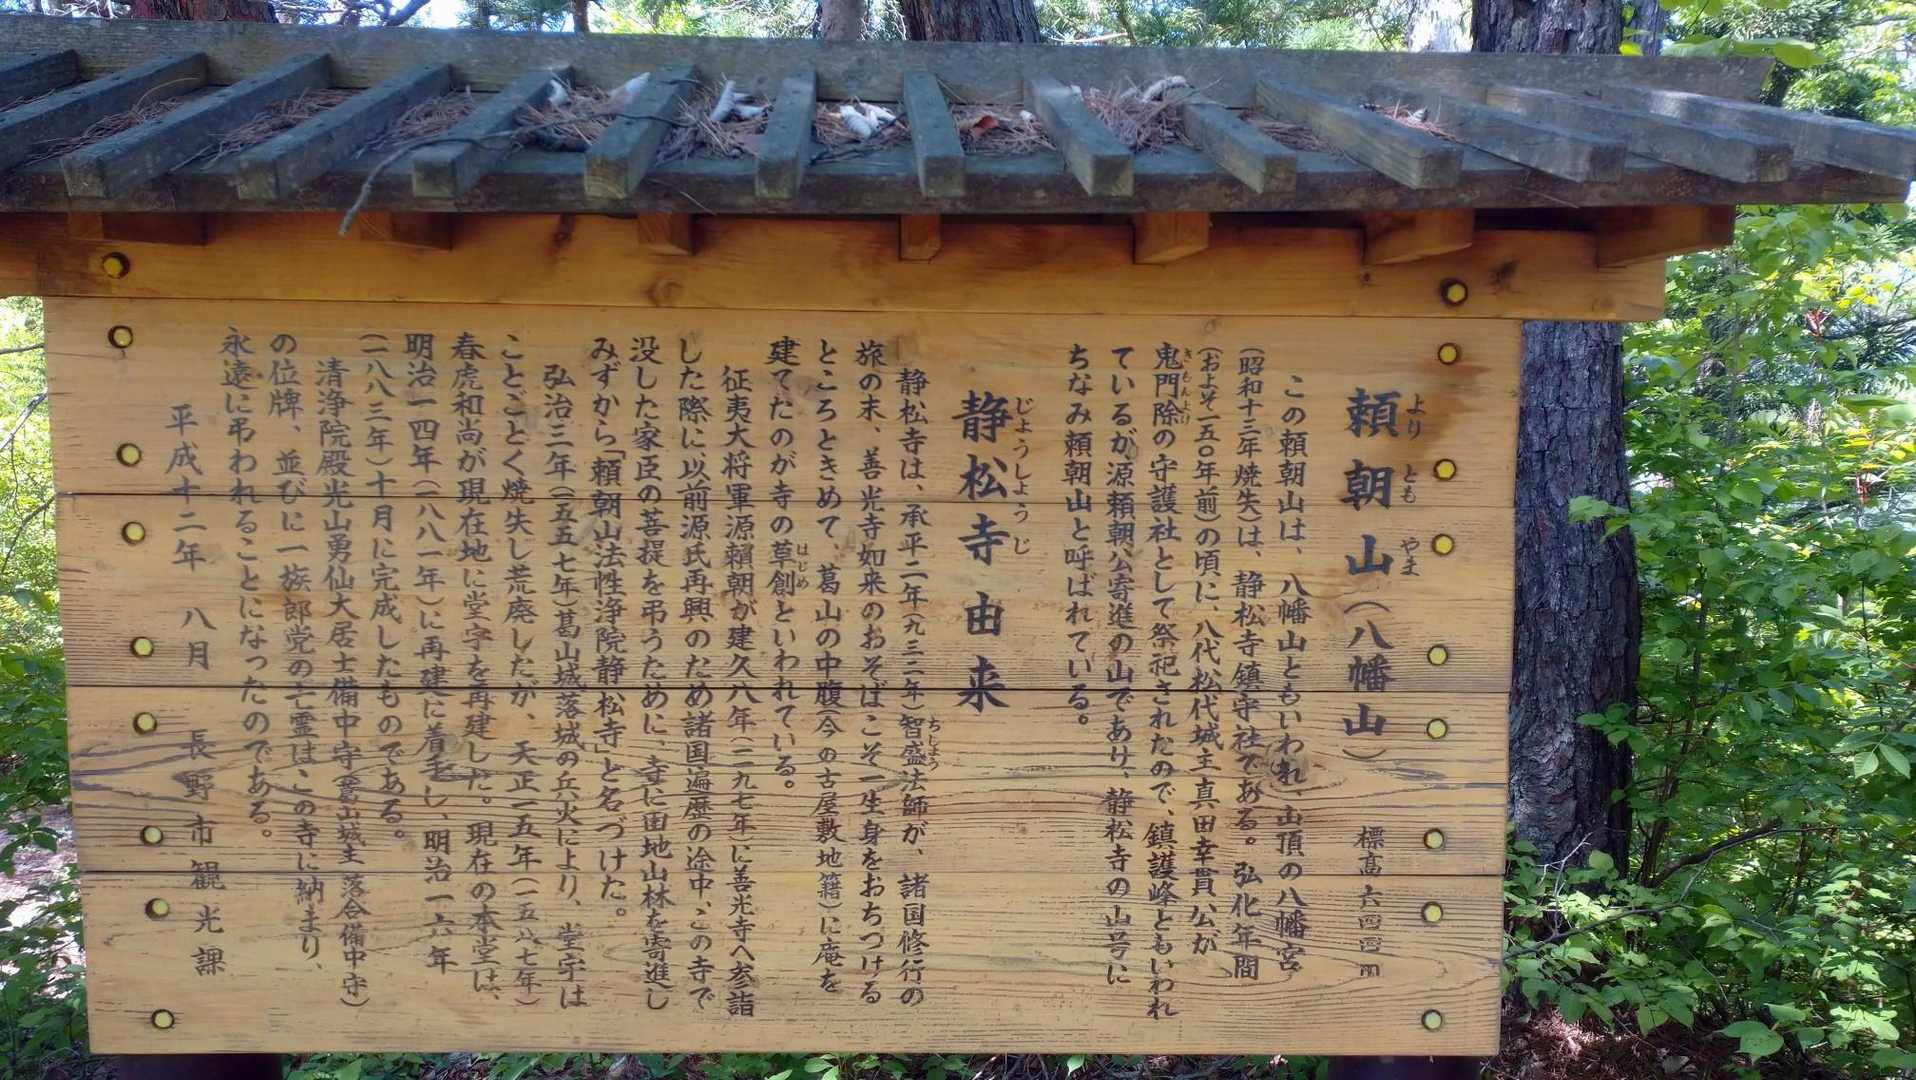 頼朝山(八幡山)
よりともやま
標高
この頼朝山は、八幡山ともいわれ、山頂の八幡宮
(昭和十三年焼失)は、静松寺鎮守社である。弘化年間
(およそ一五〇年前)の頃に、八代松代城主真田幸貫公が
鬼門除の守護社として祭祀されたので、鎮護峰ともいわれ
きもんよけ
ているが源頼朝公寄進の山であり、静松寺の山号に
ちなみ頼朝山と呼ばれている。
静松寺由来
じょうしょうじ
静松寺は、承平二年(九三二年)智盛法師が、諸国修行の
ちじょう
旅の末、善光寺如来のおそばこそ一生身をおちつける
ところときめて、葛山の中腹(今の古屋敷地籍)に庵を
建てたのが寺の草創といわれている。
はじめ
征夷大将軍源頼朝が建久八年(一一九七年)に善光寺へ参詣
した際に、以前源氏再興のため諸国遍歴の途中、この寺で
没した家臣の菩提を弔うために、寺に田地山林を寄進し
みずから「頼朝山法性浄院静松寺」と名づけた。
弘治三年(一五五七年)葛山城落城の兵火により、堂宇は
ことごとく焼失し荒廃したが、天正一五年(一五八七年)
春虎和尚が現在地に堂宇を再建した。現在の本堂は、
明治一四年(一八八一年)に再建に着手し、明治一六年
(一八八三年)十月に完成したものである。
清浄院殿光山勇仙大居士備中守(葛山城主 落合備中守)
の位牌、並びに一族郎党の亡霊はこの寺に納まり、
永遠に弔われることになったのである。
平成十二年 八月 長野市観光課